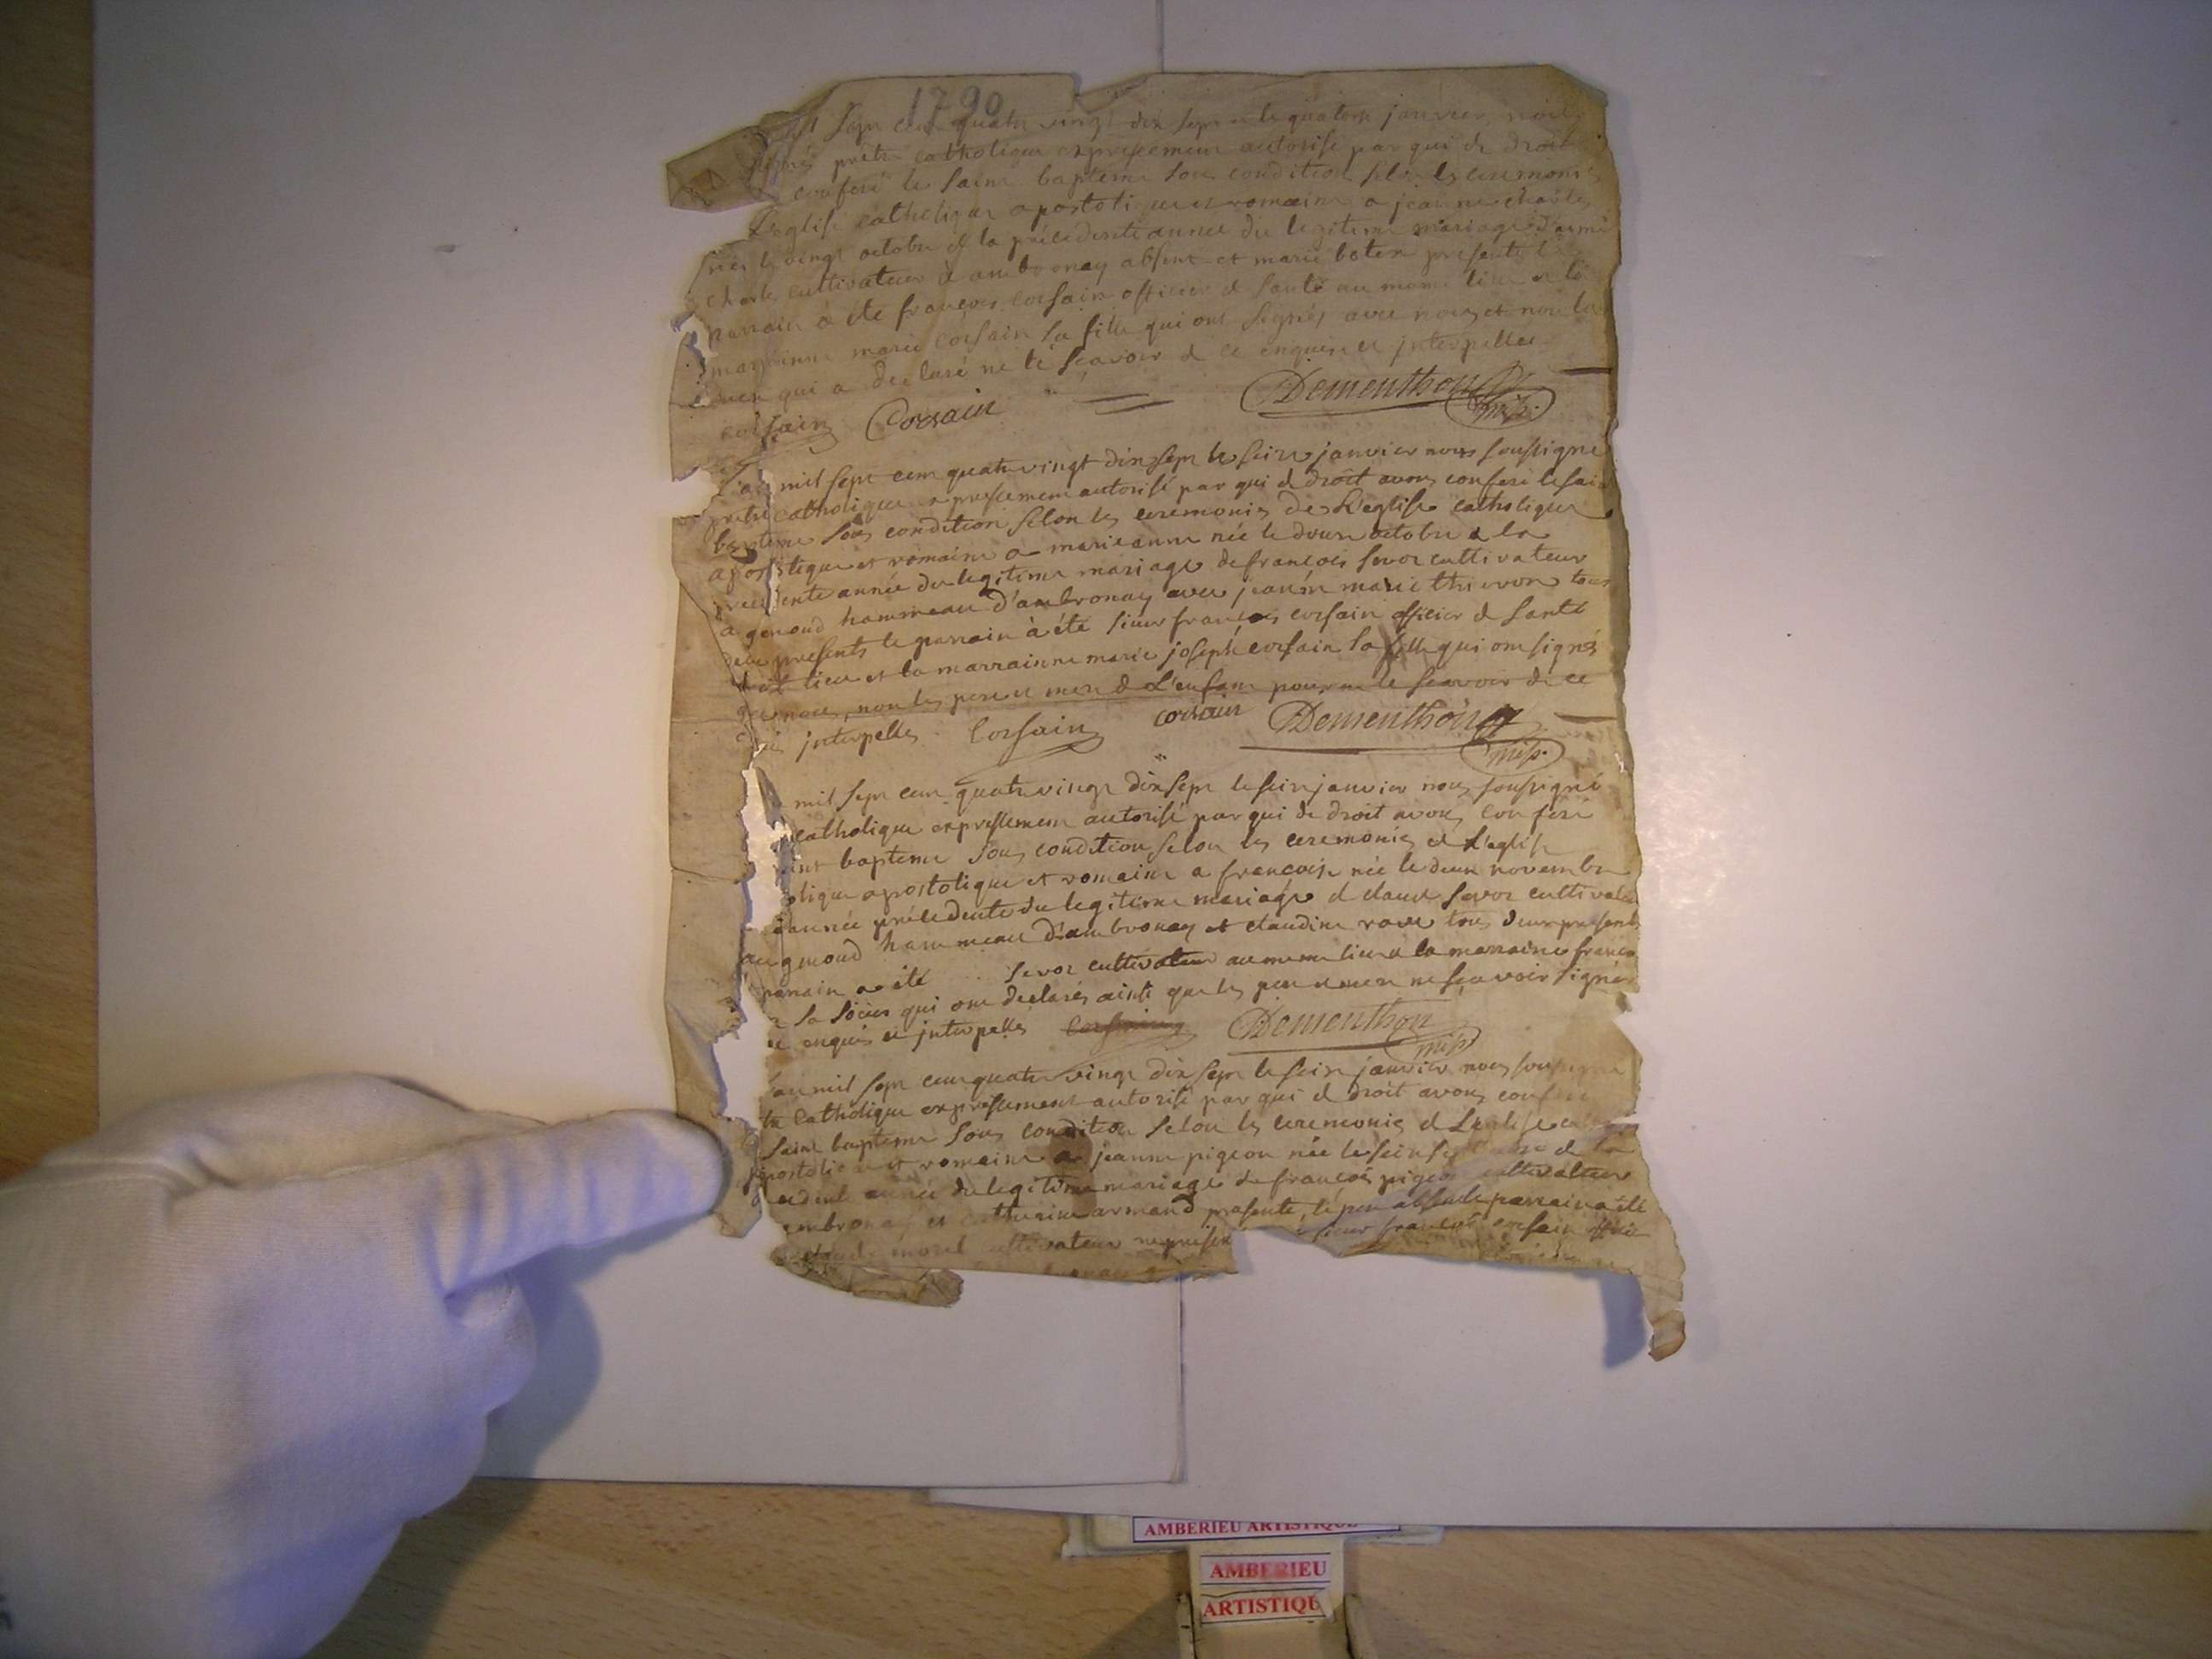 1790
sept cent quatre vingt dix sept le quatorze janvier nous
prêtre catholique expressement autorisé par qui de droit
conferé le saint baptême sous condition selon les ceremonies
L'eglise catholique apostolique et romaine a jeanne charles
née le vingt octobre de la précedente annee du legitime mariage d'aimé
charles cultivateur d'ambronay absent et marie presente le
parrain à été françois corsain officier de santé au meme lieu et la
marrainne marie corsain sa fille qui ont signés avec nous et non la
mere qui a declaré ne le sçavoir de ce enquise et jnterpellée
corsain Corsain Dementhon miss.
L'an mil sept cent quatre vingt dix sept le seize janvier nous soussigné
pretre catholique expressement autorisé par qui de droit avons conferé le saint
bapteme sous condition selon les ceremonies de L'eglise catholique
apostolique et romaine a marieanne née le douze octobre de la
precedente année du legitime mariage de francois sevoz cultivateur
a genoud hammeau d'ambronay avec jeanne marie thevenon tous
deux presents le parrain à été sieur françois corsain officier de santé
dit lieu et la marrainne marie joseph corsain sa fille qui ont signés
avec nous, non les pere et mere de L'enfant pour ne le sçavoir de ce
enquis jnterpellés corsain corsain Dementhon miss.
mil sept cent quatre vingt dix sept le seize janvier nous soussigné
catholique expressement autorisé par qui de droit avons conferé
saint bapteme sous condition selon les ceremonies de L'eglise
catholique apostolique et romaine a francoise née le deux novembre
l'année précedente du legitime mariage de claude sevoz cultivateur
au genoud hammeau d'ambronay et claudine tous deux presents
parrain a été sevoz cultivateur au meme lieu et la marraine
sa soeur qui ont declarés ainsi que les pere et mere ne sçavoir signer
ce enquis et jnterpellés corsain Dementhon miss
L'an mil sept cent quatre vingt dix sept le seize janvier nous soussigné
catholique expressement autorisé par qui de droit avons conferé
saint bapteme sous condition selon les ceremonies de L'eglise
apostolique et romaine a jeanne pigeon née le seize de la
precedente année du legitime mariage de francois pigeon cultivateur
ambronay et catherine armand presente, le pere absent le parrain a été
claude morel cultivateur sieur françois corsain officier
AMBERIEU ARTISTIQUE
AMBERIEU
ARTISTIQUE